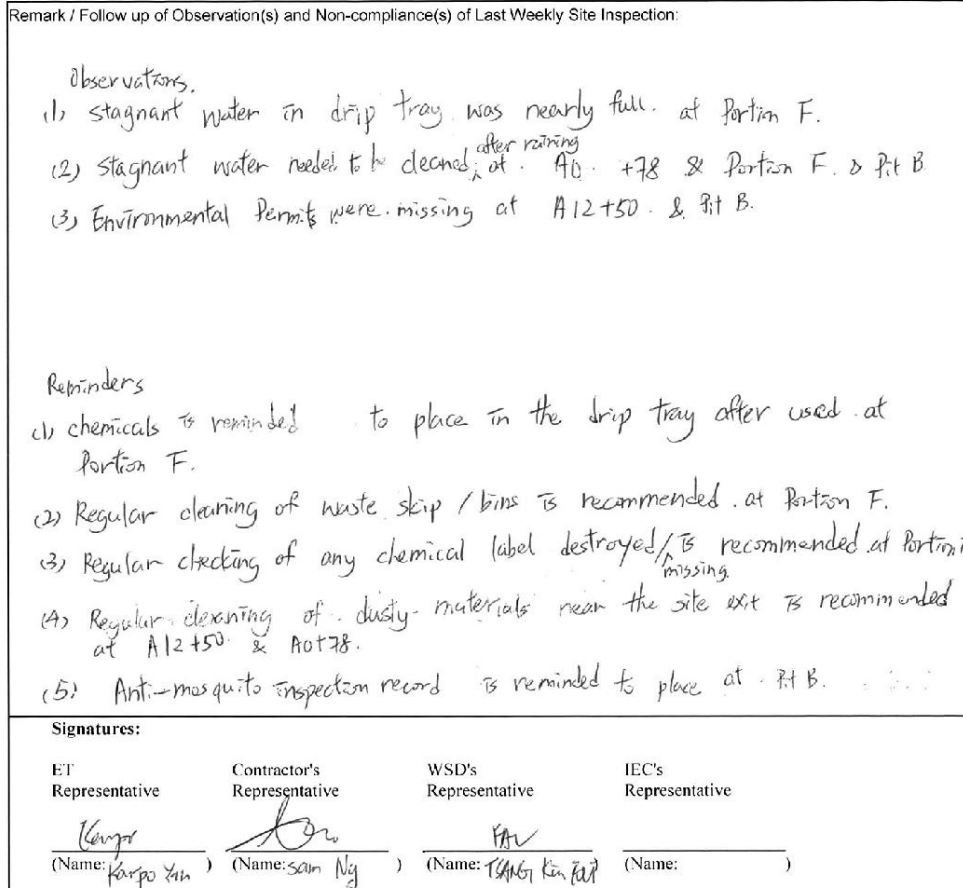 Remark / Follow up of Observation(s) and Non-compliance(s) of Last Weekly Site Inspection:
Observations.
(1) stagnant water in drip tray was nearly full. at Portion F.
(2) stagnant water needed to be cleaned, after raining at. A0. +78 & Portion F. & Pit B
(3) Environmental Permits were missing at A12+50. & Pit B.
Reminders
(1) chemicals is reminded to place in the drip tray after used at
Portion F.
(2) Regular cleaning of waste skip / bins is recommended. at Portion F.
(3) Regular checking of any chemical label destroyed/missing is recommended at Portion
(4) Regular cleaning of dusty materials near the site exit is recommended
at A12+50. & A0+78.
(5) Anti-mosquito inspection record is reminded to place at Pit B.
Signatures:
ET Contractor's WSD's IEC's
Representative Representative Representative Representative
(Name: Karpo Yan ) (Name: Sam Ng ) (Name: TSANG Kin ) (Name: )